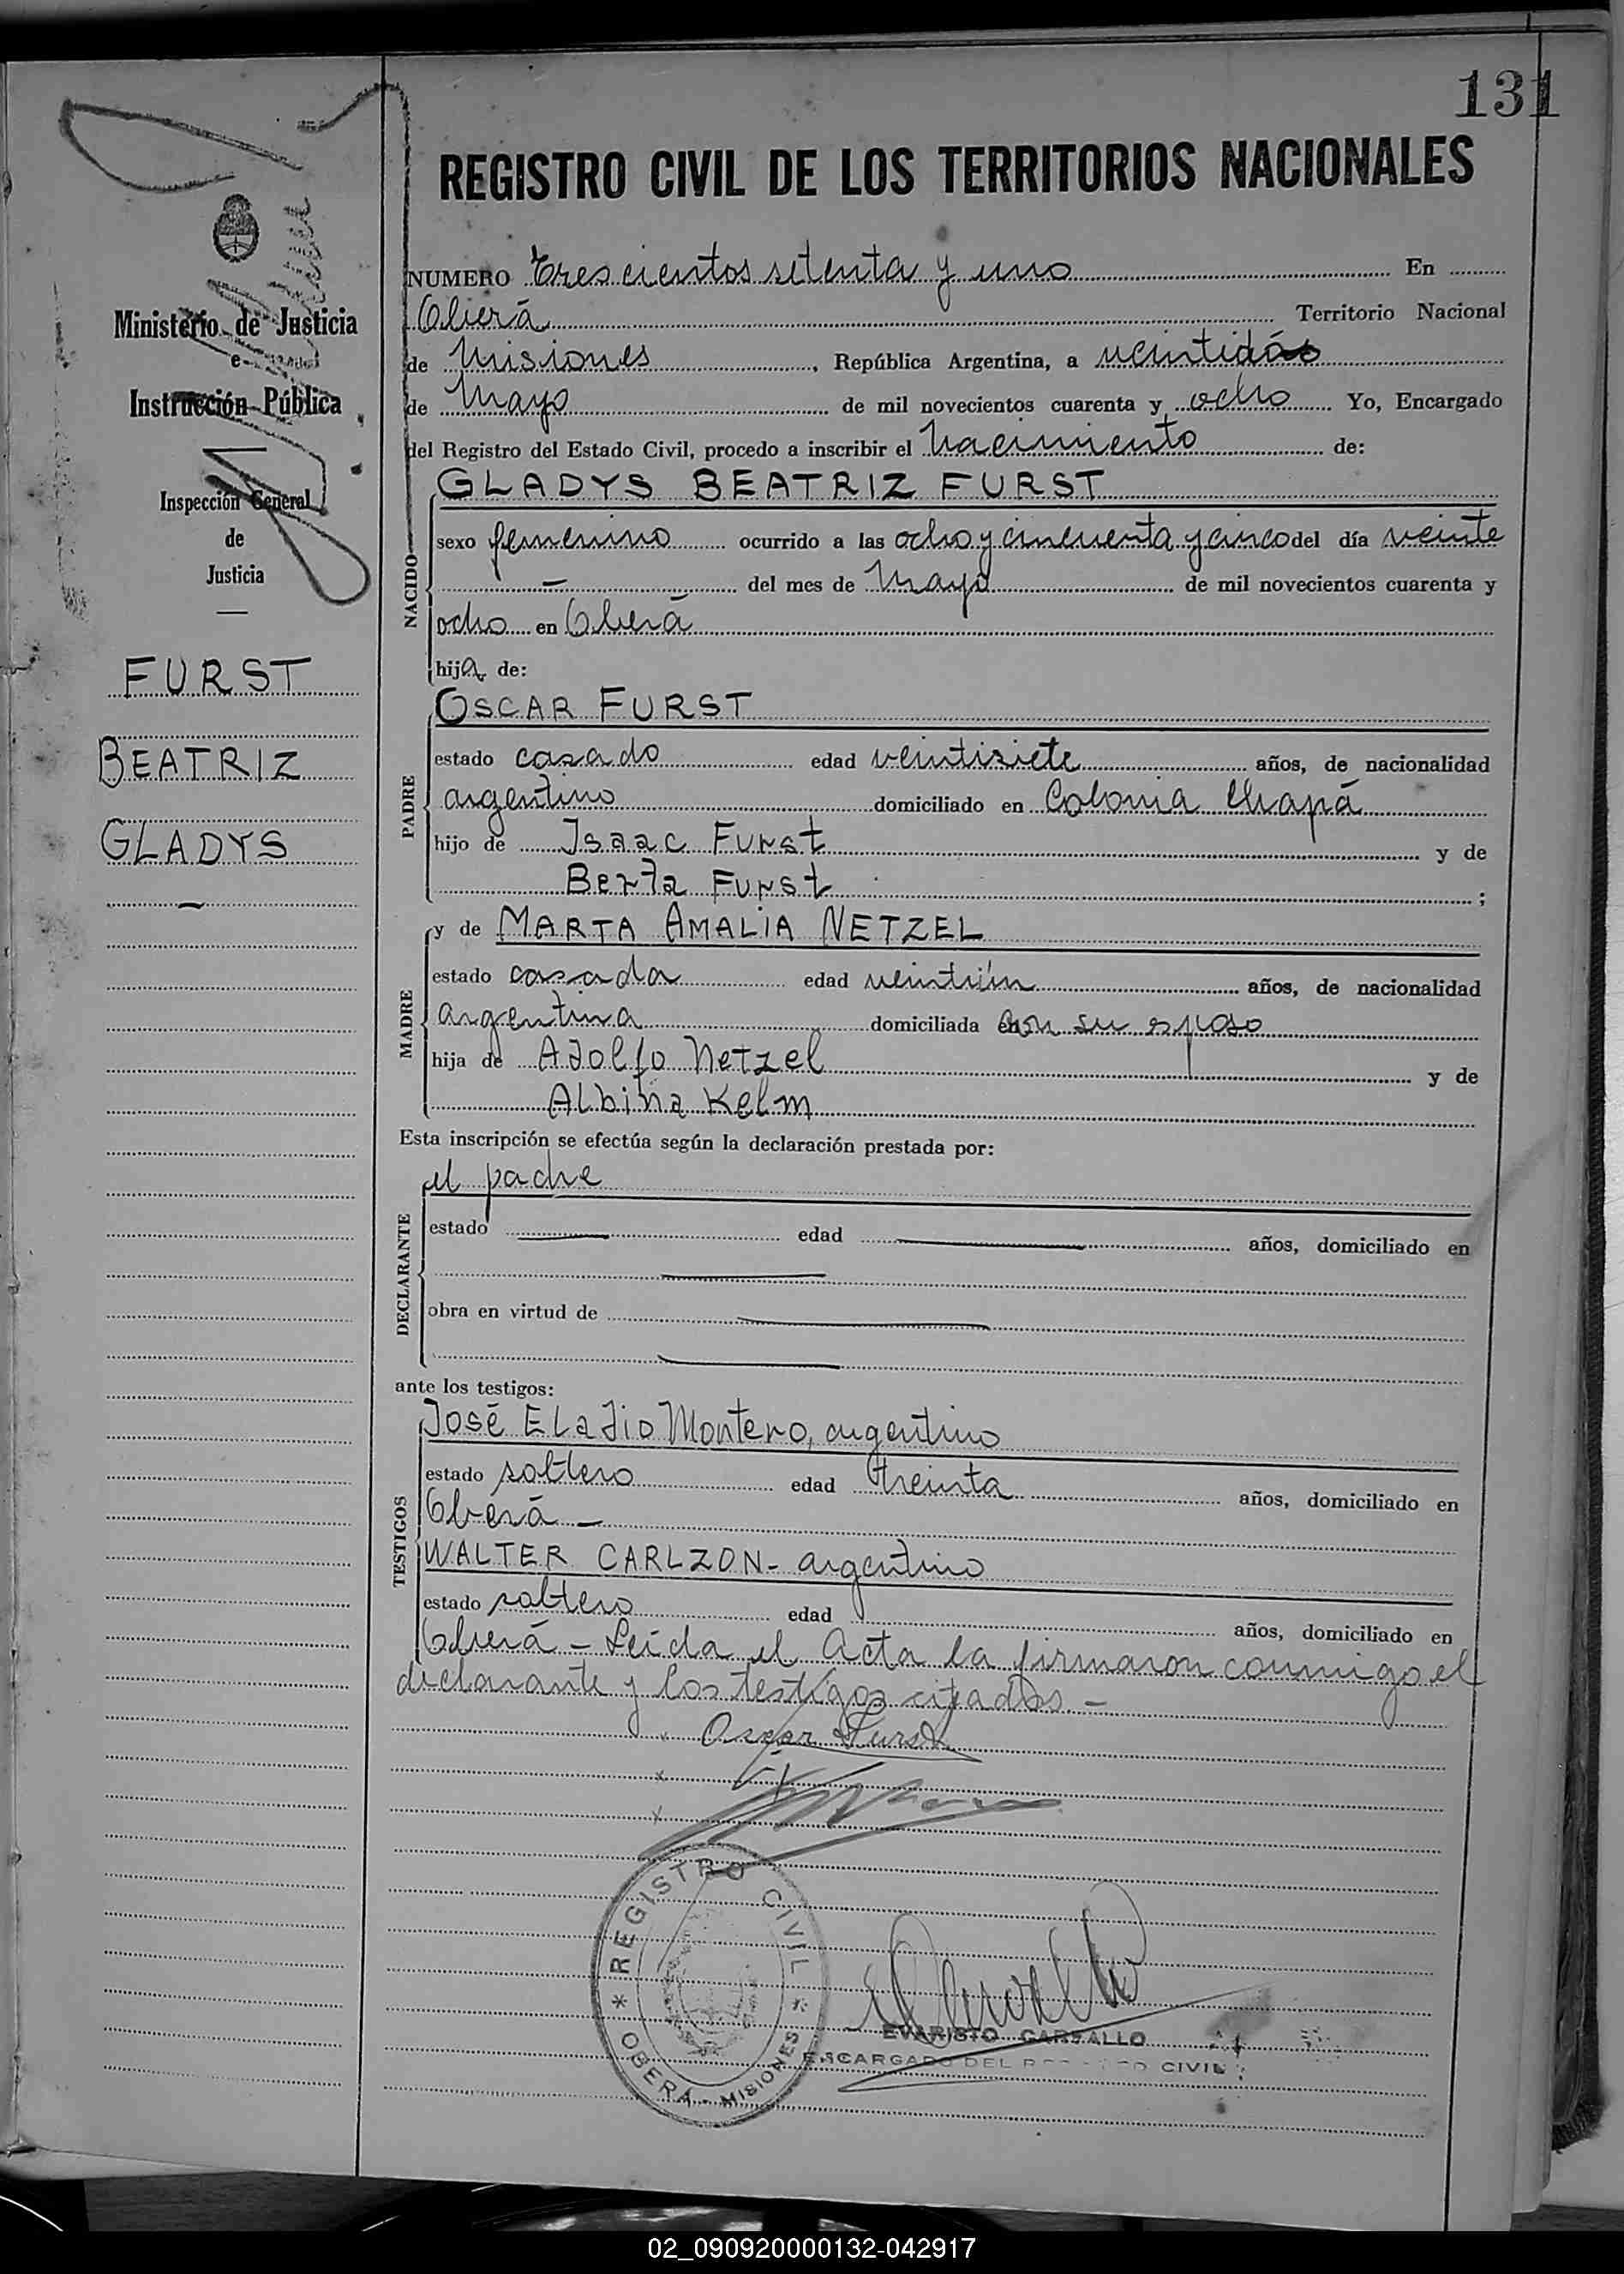 131
REGISTRO CIVIL DE LOS TERRITORIOS NACIONALES
Ministerio de Justicia
e
Instrucción Pública
Inspección General
de
Justicia
FURST
BEATRIZ
GLADYS
NUMERO Trescientos setenta y uno En
Oberá Territorio Nacional
de Misiones, República Argentina, a veintidós
de Mayo de mil novecientos cuarenta y ocho Yo, Encargado
del Registro del Estado Civil, procedo a inscribir el Nacimiento de:
NACIDO
GLADYS BEATRIZ FURST
sexo femenino ocurrido a las ocho y cincuenta y cinco del día veinte
— del mes de Mayo de mil novecientos cuarenta y
ocho en Oberá
hija de:
PADRE
OSCAR FURST
estado casado edad veintisiete años, de nacionalidad
argentino domiciliado en Colonia Chapá
hijo de Isaac Furst y de
Berta Furst ;
MADRE
y de MARTA AMALIA NETZEL
estado casada edad veintiún años, de nacionalidad
argentina domiciliada con su esposo
hija de Adolfo Netzel y de
Albina Kelm
Esta inscripción se efectúa según la declaración prestada por:
DECLARANTE
el padre
estado — edad — años, domiciliado en
—
obra en virtud de —
—
ante los testigos:
TESTIGOS
José Eladio Montero, argentino
estado soltero edad treinta años, domiciliado en
Oberá —
WALTER CARLZON - argentino
estado soltero edad años, domiciliado en
Oberá - Leída el Acta la firmaron conmigo el
declarante y los testigos citados. -
x Oscar Furst
x
x
REGISTRO CIVIL
* OBERA - MISIONES *
EVARISTO CARVALLO
ENCARGADO DEL REGISTRO CIVIL
02_090920000132-042917